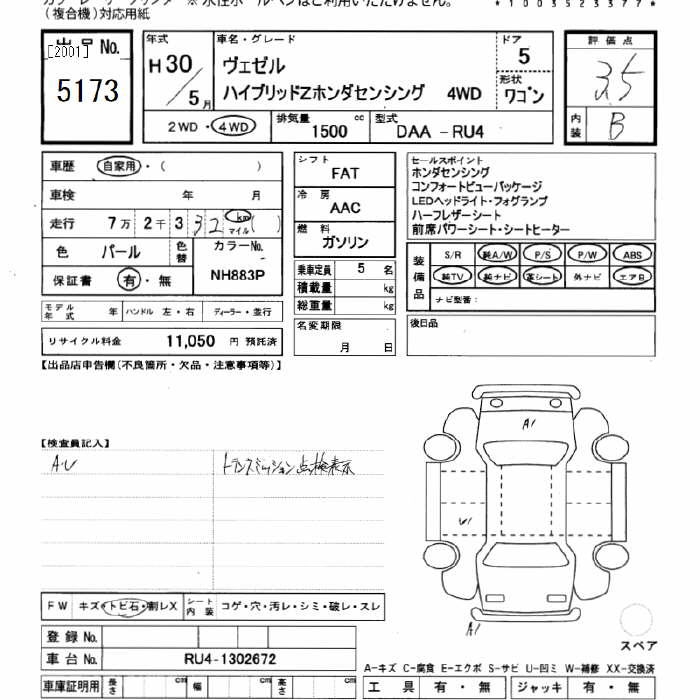 (複合機)対応用紙
*1003523377*
出品 No.
[2001]
5173
年式
H30
5月
車名・グレード
ヴェゼル
ハイブリッドZホンダセンシング 4WD
ドア
5
形状
ワゴン
2WD・4WD
排気量
1500 cc
型式
DAA -RU4
評価点
3.5
内装
B
車歴 自家用・( )
車検 年 月
走行 7万 2千 3 32 km マイル ( )
色 パール
色替
カラーNo.
NH883P
保証書 有・無
シフト
FAT
冷房
AAC
燃料
ガソリン
乗車定員 5 名
積載量 kg
総重量 kg
セールスポイント
ホンダセンシング
コンフォートビューパッケージ
LEDヘッドライト・フォグランプ
ハーフレザーシート
前席パワーシート・シートヒーター
装備品
S/R 純A/W P/S P/W ABS
純TV 純ナビ 革シート 外ナビ エアB
ナビ型番:
モデル年式 年 ハンドル 左・右 ディーラー・並行
名変期限
月 日
後日品
リサイクル料金 11,050 円 預託済
【出品店申告欄(不良箇所・欠品・注意事項等)】
【検査員記入】
A.U
トランスミッション点検表示
A1
U1
A1
FW キズ・トビ石・割レX
シート内装 コゲ・穴・汚レ・シミ・破レ・スレ
登録 No.
車台 No. RU4-1302672
スペア
A-キズ C-腐食 E-エクボ S-サビ U-凹ミ W-補修 XX-交換済
車庫証明用 長さ cm 幅 cm 高さ cm
工具 有・無 ジャッキ 有・無